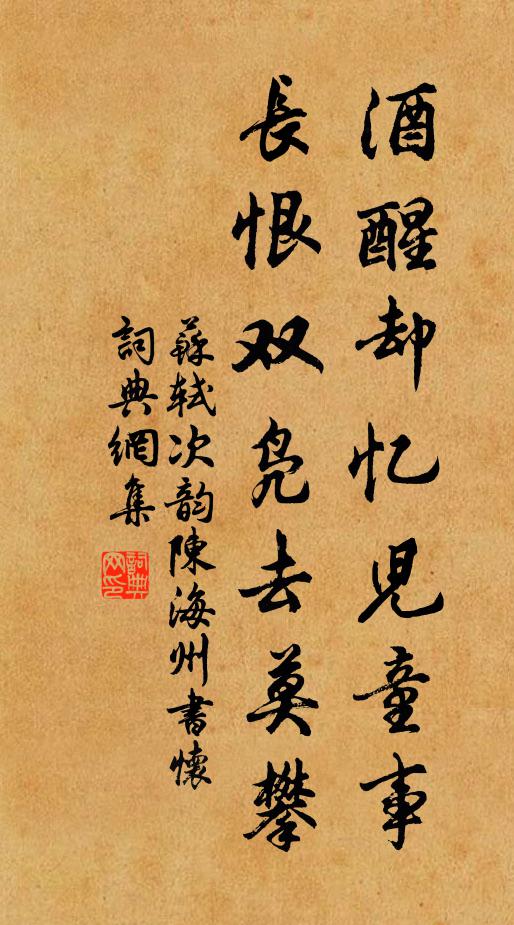 酒醒却忆児童事
長恨双凫去莫攀
蘇轼次韵陳海州書懷
詞典網集
詞典网印